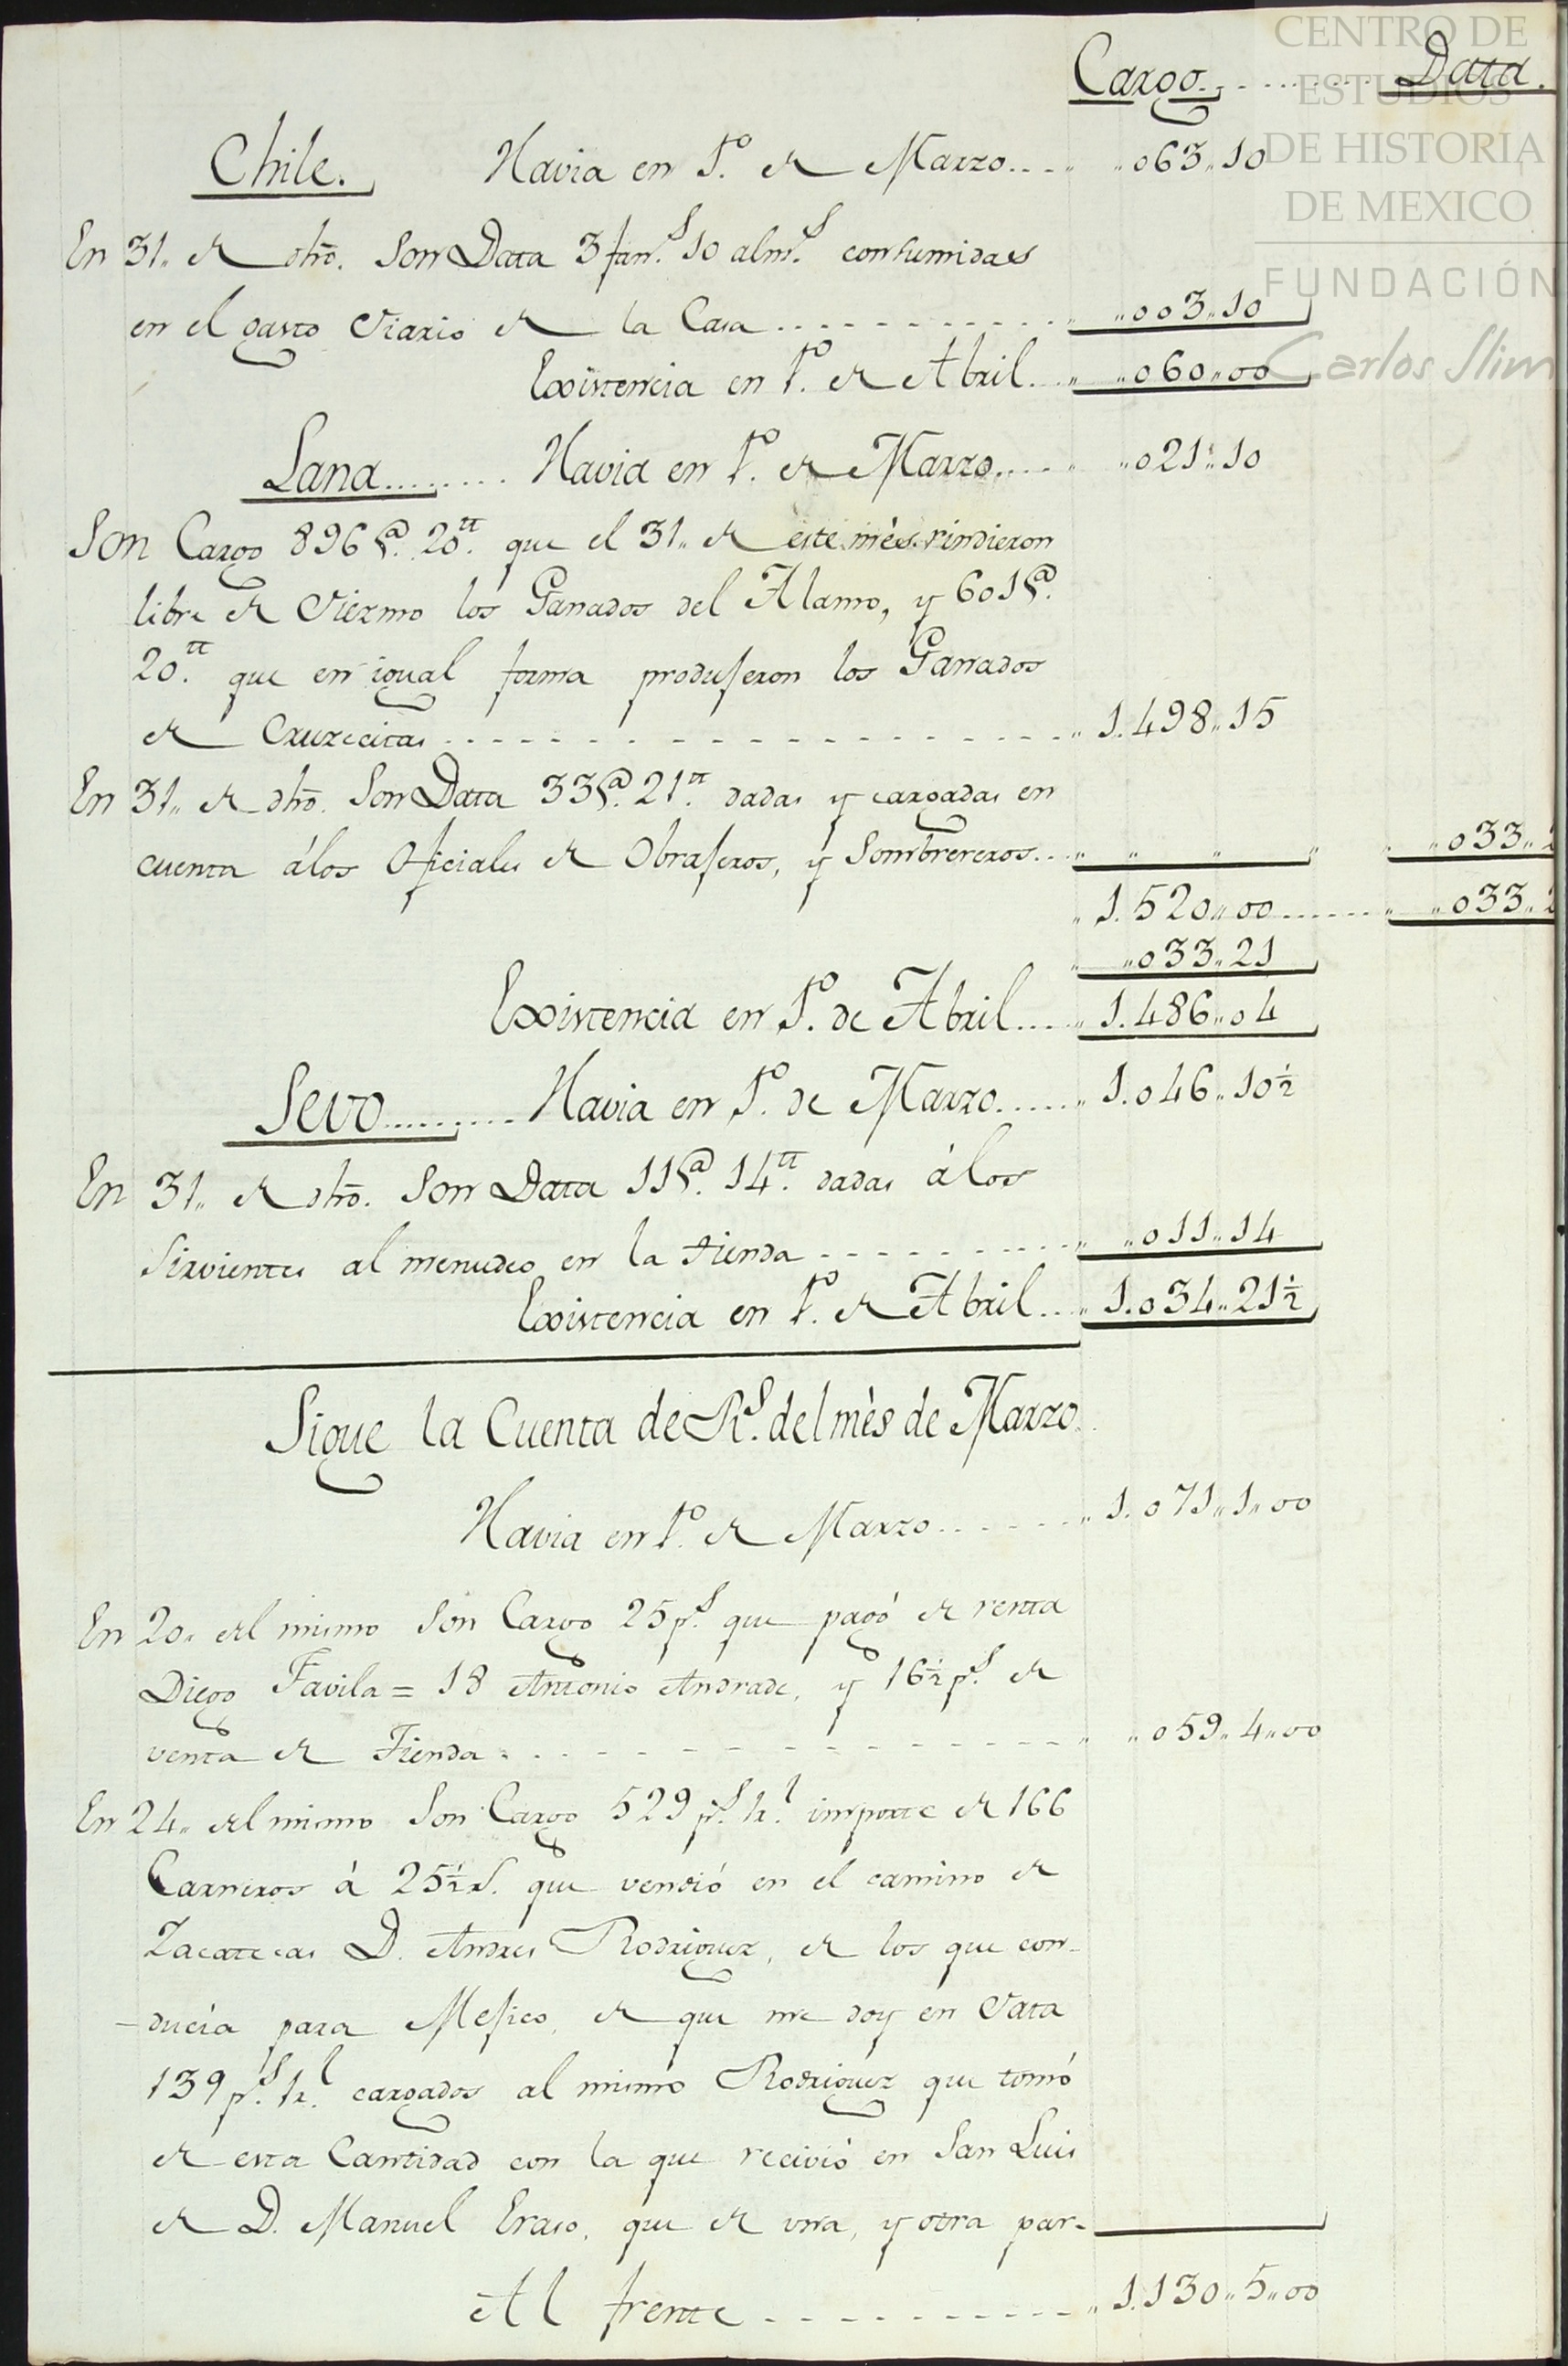 CENTRO DE
ESTUDIOS
DE HISTORIA
DE MEXICO
FUNDACIÓN
Carlos Slim
Cargo. Data.
Chile. Havia en 1º de Marzo.... „063„10
En 31„ de dho. Son Data 3 fans. 10 alms. consumidas
en el gasto diario de la Casa........... „003„10
Existencia en 1º de Abril... „060„00
Lana........ Havia en 1º de Marzo.... „021„10
Son Cargo 896@. 20tt. que el 31„ de este mès rindieron
libre de diezmo los Ganados del Alamo, y 601@.
20tt. que en igual forma produjeron los Ganados
de Cruzecitas................ 1.498„15
En 31„ de dho. Son Data 33@. 21tt. dadas y cargadas en
cuenta álos Oficiales de Obrajeros, y Sombrereros... „ „ „ „ „033„2
1.520„00...... „033„2
„033„21
Existencia en 1º de Abril.... 1.486„04
Sevo........ Havia en 1º de Marzo..... 1.046„10½
En 31„ de dho. Son Data 11@. 14tt. dadas álos
Sirvientes al menudeo en la tienda........ „011„14
Existencia en 1º de Abril... 1.034„21½
Sigue la Cuenta de Rs. del mès de Marzo.
Havia en 1º de Marzo....... 1.071„1„00
En 20„ del mismo Son Cargo 25 ps. que pagó de renta
Diego Favila = 18 Antonio Andrade, y 16½ ps. de
venta de Tienda................ „059„4„00
En 24„ del mismo Son Cargo 529 ps. 1rl. importe de 166
Carneros à 25½ rs. que vendió en el camino de
Zacatecas D. Andres Rodriguez, de los que con-
-ducía para Mejico, de que me doy en Data
139 ps. 1rl. cargados al mismo Rodriguez que tomó
de esta Cantidad con la que recivió en San Luis
de D. Manuel Eraso, que de una, y otra par-
Al frente........... 1.130„5„00